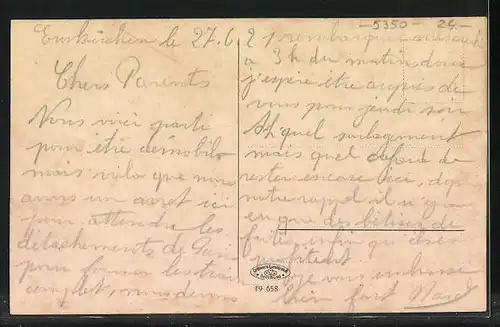 -5350- 24.-
Euskirchen le 27.6.21
Chers Parents
Nous voici parti
pour être démobilo
mais voila que nous
avons un arret ici
pour attendre les
détachements de
pour former les train
complet, nous devons
rembarquer
a 3h du matin donc
j'espère être auprès de
vous pour jeudi soir
Ah quel soulagement
mais quel de
rester encore ici, depuis
notre rappel il n'y a
eu que des bêtises de
faites, enfin
Je vous embrasse
bien fort Marcel
19 658